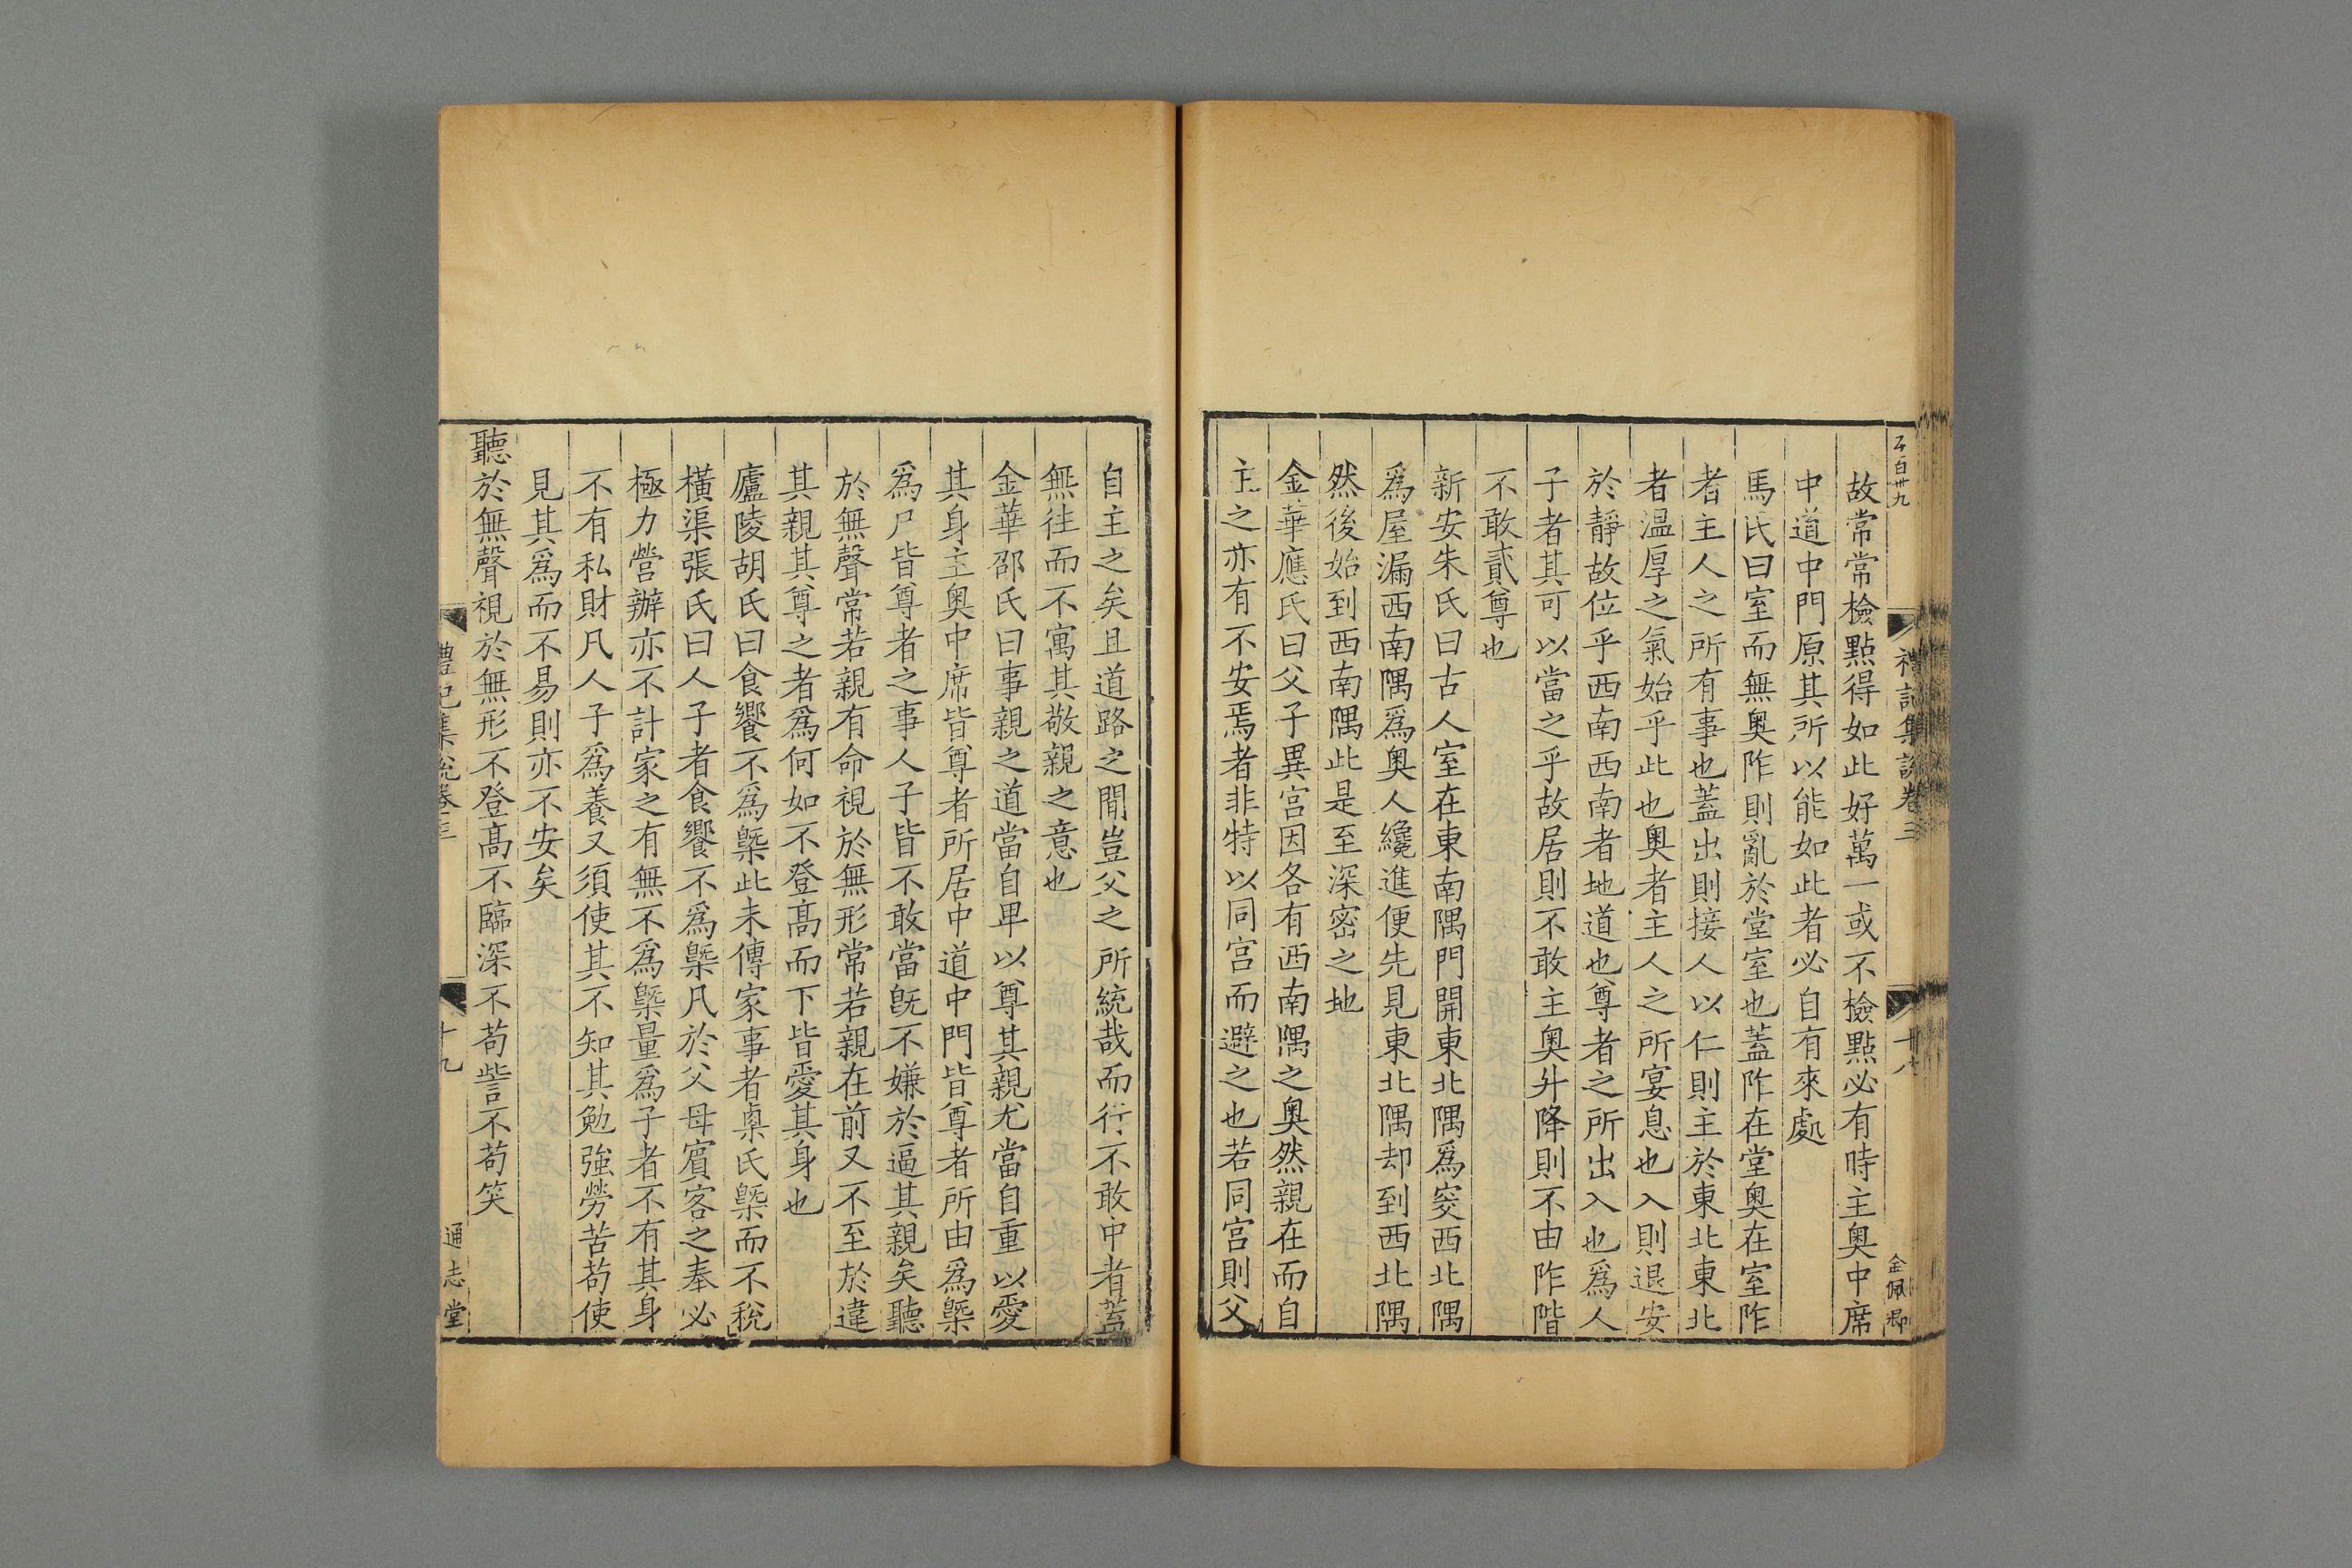 禮記集說卷三
十八
金佩卿
故常常檢點得如此好萬一或不檢點必有時主奥中席
中道中門原其所以能如此者必自有來處
馬氏曰室而無奥阼則亂於堂室也蓋阼在堂奥在室阼
者主人之所有事也蓋出則接人以仁則主於東北東北
者溫厚之氣始乎此也奥者主人之所宴息也入則退安
於靜故位乎西南西南者地道也尊者之所出入也爲人
子者其可以當之乎故居則不敢主奥升降則不由阼階
不敢貳尊也
新安朱氏曰古人室在東南隅門開東北隅爲窔西北隅
爲屋漏西南隅爲奥人纔進便先見東北隅却到西北隅
然後始到西南隅此是至深密之地
金華應氏曰父子異宮因各有西南隅之奥然親在而自
主之亦有不安焉者非特以同宮而避之也若同宮則父
自主之矣且道路之閒豈父之所統哉而行不敢中者蓋
無徃而不寓其敬親之意也
金華邵氏曰事親之道當自卑以尊其親尤當自重以愛
其身主奥中席皆尊者所居中道中門皆尊者所由爲槩
爲尸皆尊者之事人子皆不敢當旣不嫌於逼其親矣聽
於無聲常若親有命視於無形常若親在前又不至於違
其親其尊之者爲何如不登髙而下皆愛其身也
廬陵胡氏曰食饗不爲槩此未傳家事者㮚氏槩而不稅
橫渠張氏曰人子者食饗不爲槩凡於父母賓客之奉必
極力營辦亦不計家之有無不爲槩量爲子者不有其身
不有私財凡人子爲養又須使其不知其勉強勞苦茍使
見其爲而不易則亦不安矣
聽於無聲視於無形不登髙不臨深不苟訾不苟笑
禮記集說卷三
十九
通志堂